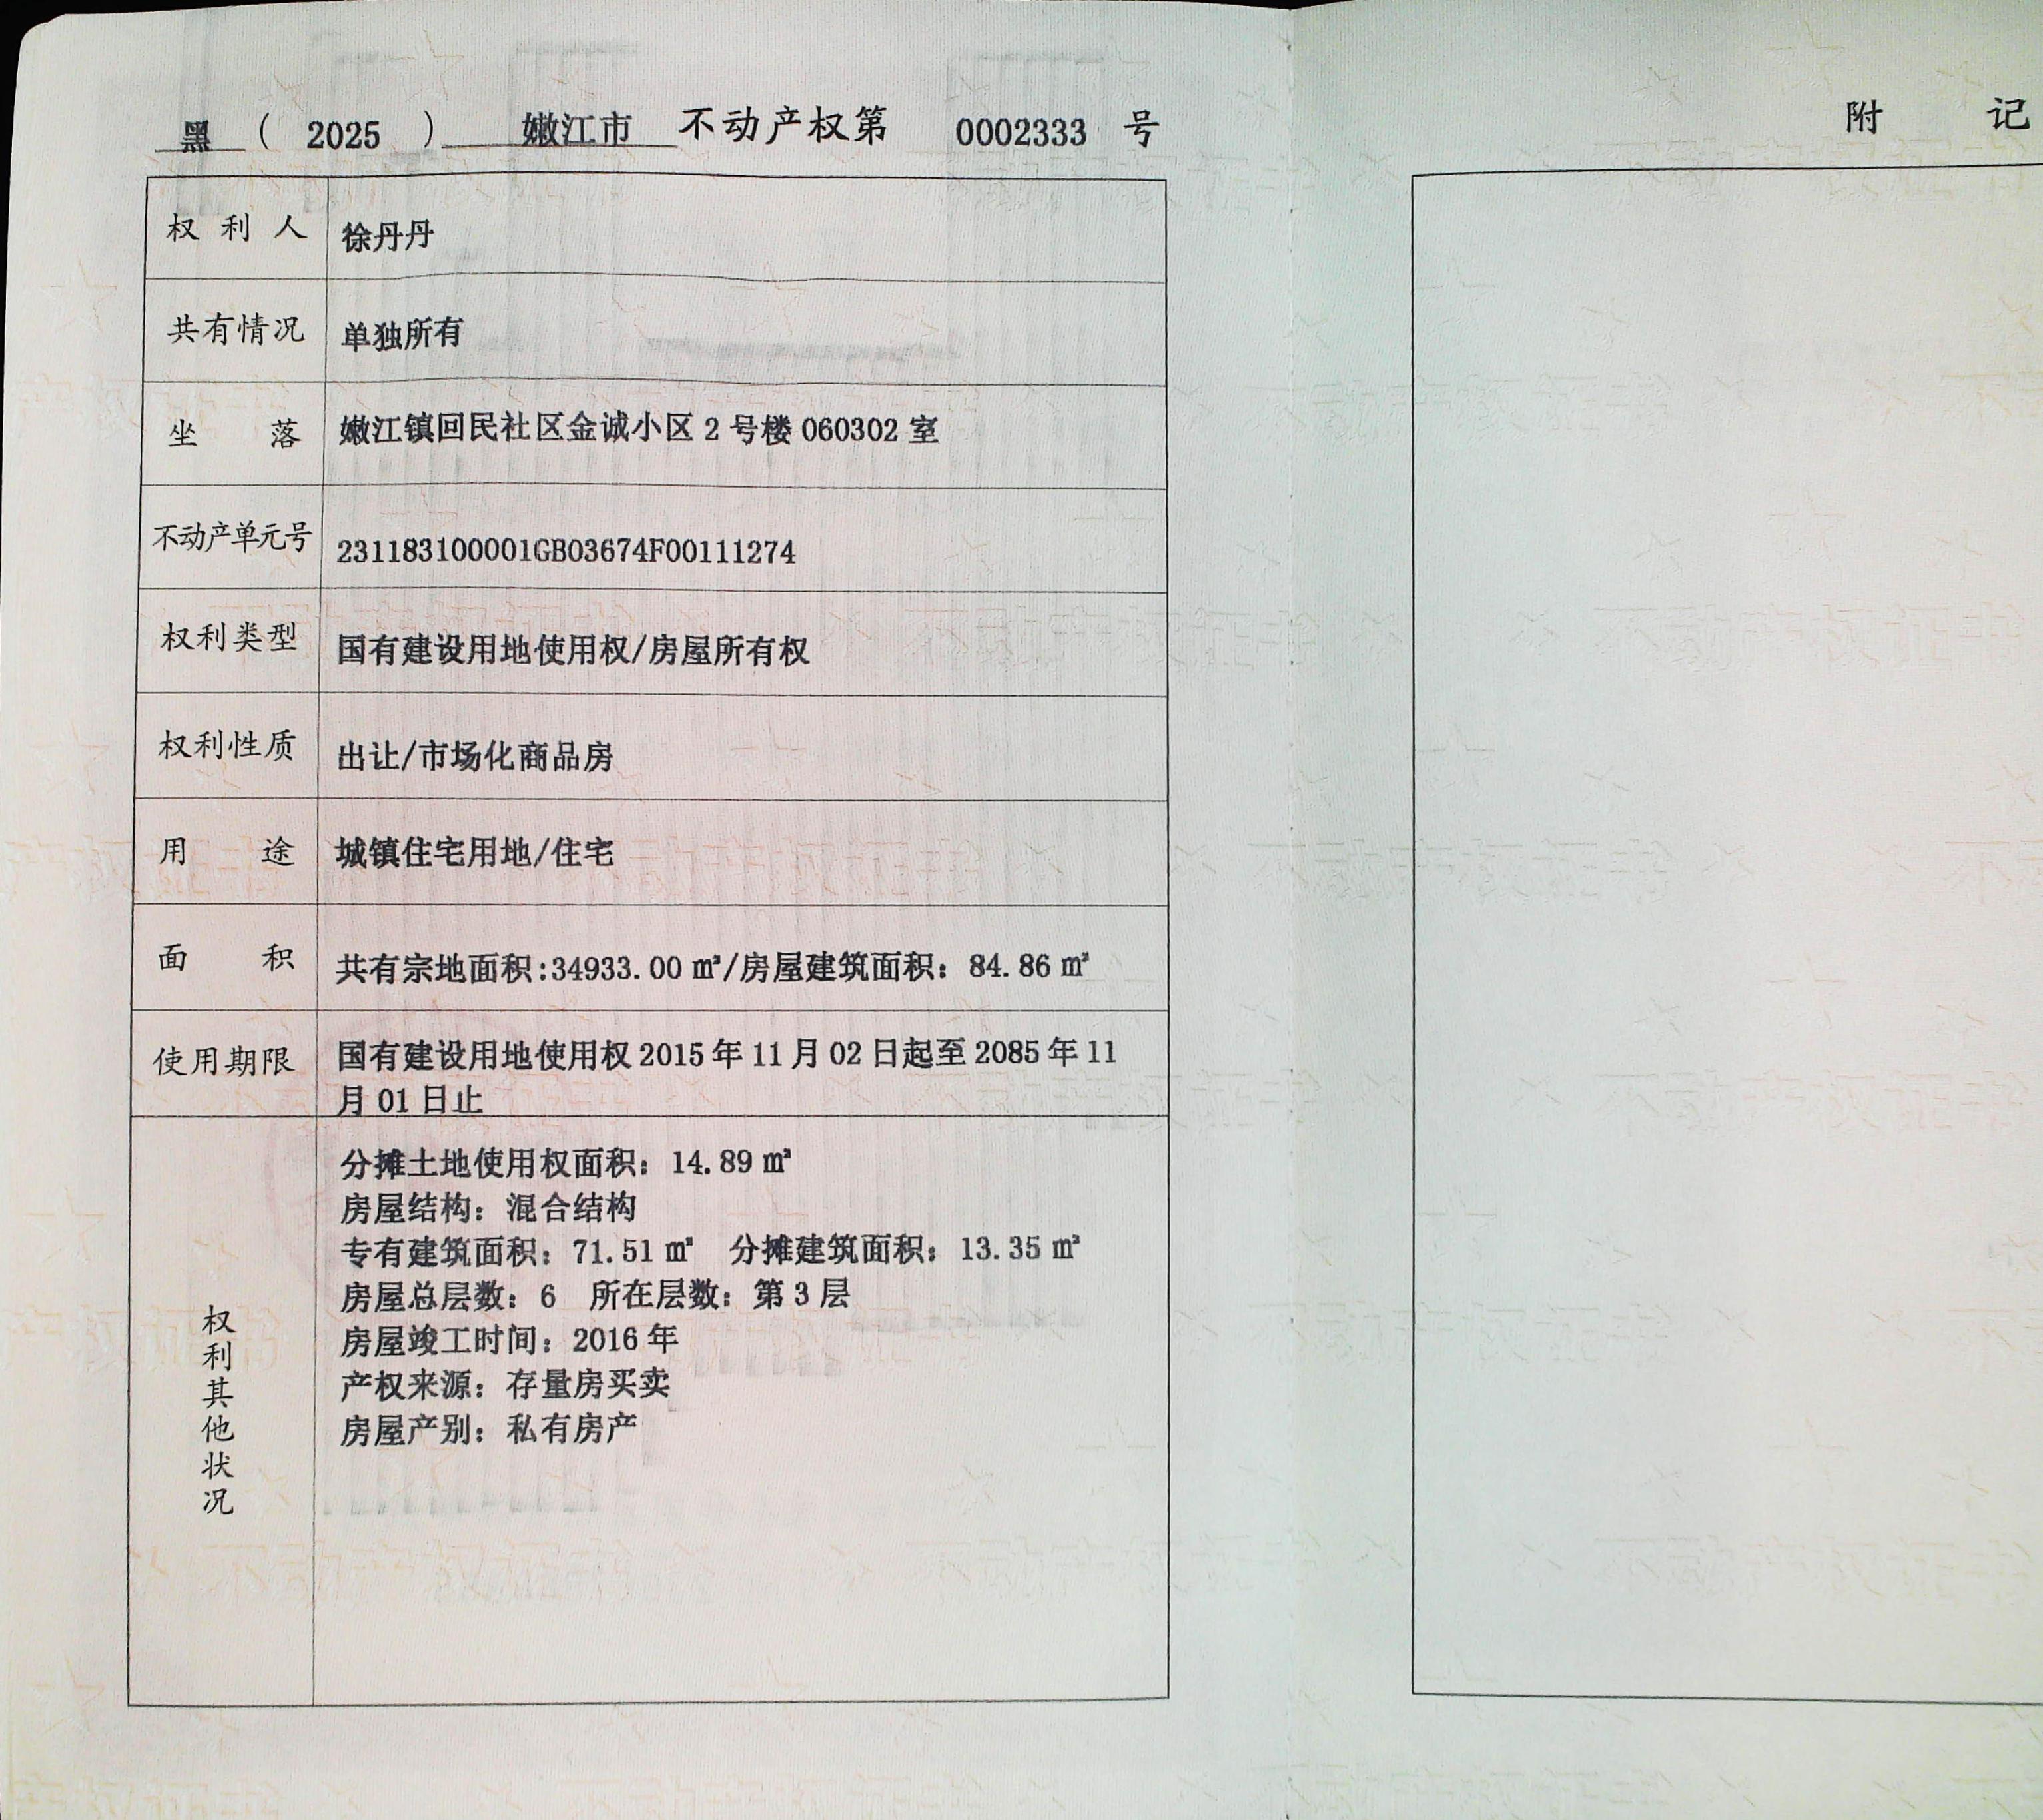 黑 ( 2025 ) 嫩江市 不动产权第 0002333 号
权利人 徐丹丹
共有情况 单独所有
坐落 嫩江镇回民社区金诚小区 2 号楼 060302 室
不动产单元号 231183100001GB03674F00111274
权利类型 国有建设用地使用权/房屋所有权
权利性质 出让/市场化商品房
用途 城镇住宅用地/住宅
面积 共有宗地面积:34933.00 ㎡/房屋建筑面积: 84.86 ㎡
使用期限 国有建设用地使用权 2015 年 11 月 02 日起至 2085 年 11
月 01 日止
权利其他状况
分摊土地使用权面积: 14.89 ㎡
房屋结构: 混合结构
专有建筑面积: 71.51 ㎡ 分摊建筑面积: 13.35 ㎡
房屋总层数: 6 所在层数: 第 3 层
房屋竣工时间: 2016 年
产权来源: 存量房买卖
房屋产别: 私有房产
附记